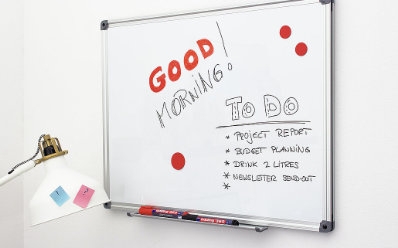 GOOD!
MORNING.
TO DO
* PROJECT REPORT
* BUDGET PLANNING
* DRINK 2 LITRES
* NEWSLETTER SEND-OUT
*